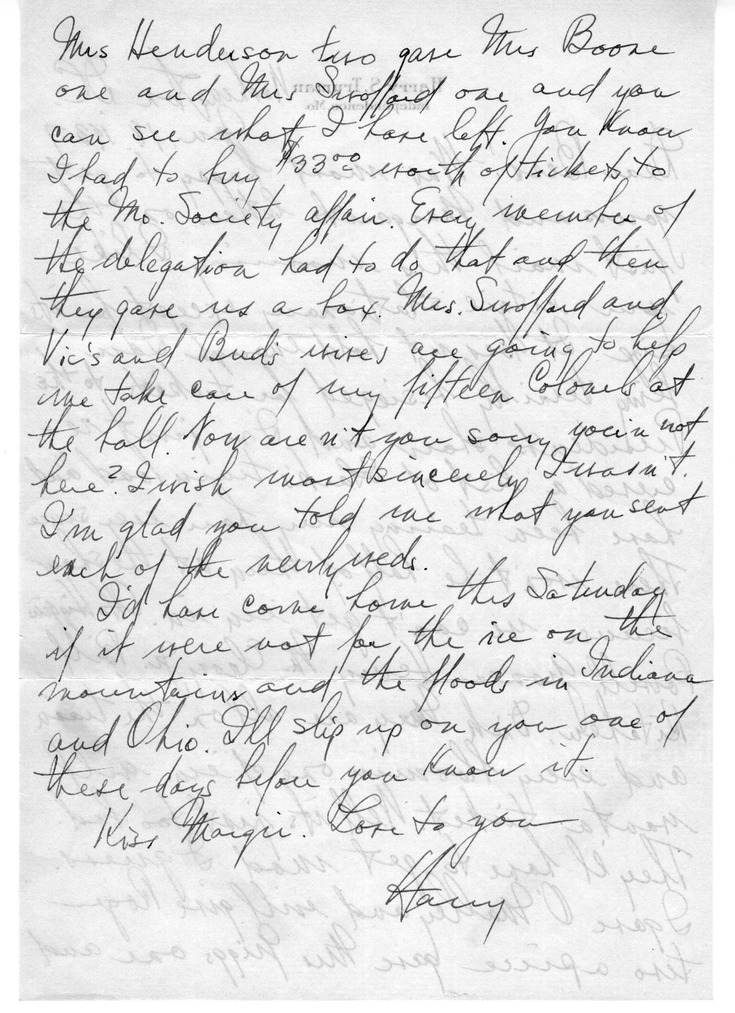 Mrs Henderson two gave Mrs Boone
one and Mrs Swofford one and you
can see what I have left. You know
I had to buy $33.00 worth of tickets to
the Mo. Society affair. Every member of
the delegation had to do that and then
they gave us a box. Mrs. Swofford and
Vic's and Bud's wives are going to help
me take care of my fifteen Colonels at
the ball. Now are n't you sorry you're not
here? I wish most sincerely I wasn't.
I'm glad you told me what you sent
each of the newlyweds.
I'd have come home this Saturday
if it were not for the ice on the
mountains and the floods in Indiana
and Ohio. I'll slip up on you one of
these days before you know it.
Kiss Margie. Love to you
Harry